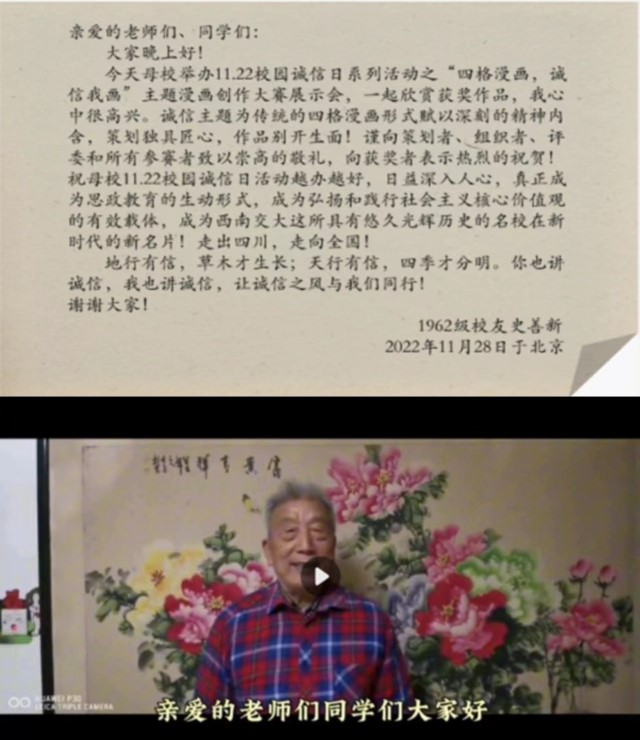 亲爱的老师们、同学们：
大家晚上好！
今天母校举办11.22校园诚信日系列活动之“四格漫画，诚
信我画”主题漫画创作大赛展示会，一起欣赏获奖作品，我心
中很高兴。诚信主题为传统的四格漫画形式赋以深刻的精神内
含，策划独具匠心，作品别开生面！谨向策划者、组织者、评
委和所有参赛者致以崇高的敬礼，向获奖者表示热烈的祝贺！
祝母校11.22校园诚信日活动越办越好，日益深入人心，真正成
为思政教育的生动形式，成为弘扬和践行社会主义核心价值观
的有效载体，成为西南交大这所具有悠久光辉历史的名校在新
时代的新名片！走出四川，走向全国！
地行有信，草木才生长；天行有信，四季才分明。你也讲
诚信，我也讲诚信，让诚信之风与我们同行！
谢谢大家！
1962级校友史善新
2022年11月28日于北京
HUAWEI P30
LEICA TRIPLE CAMERA
亲爱的老师们同学们大家好